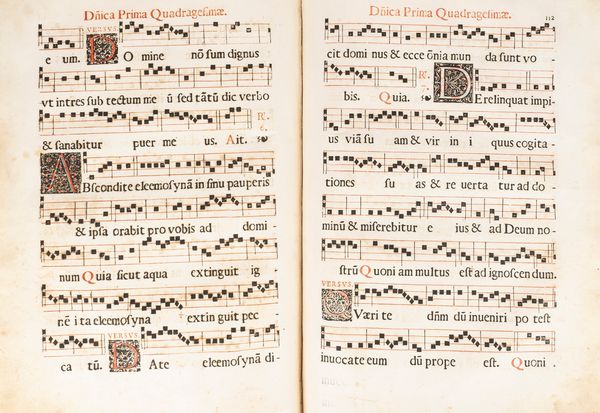 Dñica Prima Quadragesimæ.
VERSUS.
e um. DO mine nõ sum dignus
vt intres sub tectum me ũ sed tãtũ dic verbo
℟.
6.
& sanabitur puer me us. Ait.
ABscondite eleemosynã in sinu pauperis
& ipsa orabit pro vobis ad domi-
num Quia sicut aqua extinguit ig-
nẽ i ta eleemosyna extin guit pec-
VERSUS.
ca tũ. DAte eleemosynã di-
Dñica Prima Quadragesimæ.
112
cit domi nus & ecce õnia mun da sunt vo-
℟.
7.
bis. Quia. DErelinquat impi-
us viã su am & vir in i quus cogita-
tiones su as & re uerta tur ad do-
minũ & miserebitur e ius & ad Deum no-
strũ Quoni am multus est ad ignoscen dum.
VERSUS.
QVæri te dñm dũ inueniri po test
inuocate eum dũ prope est. Quoni.